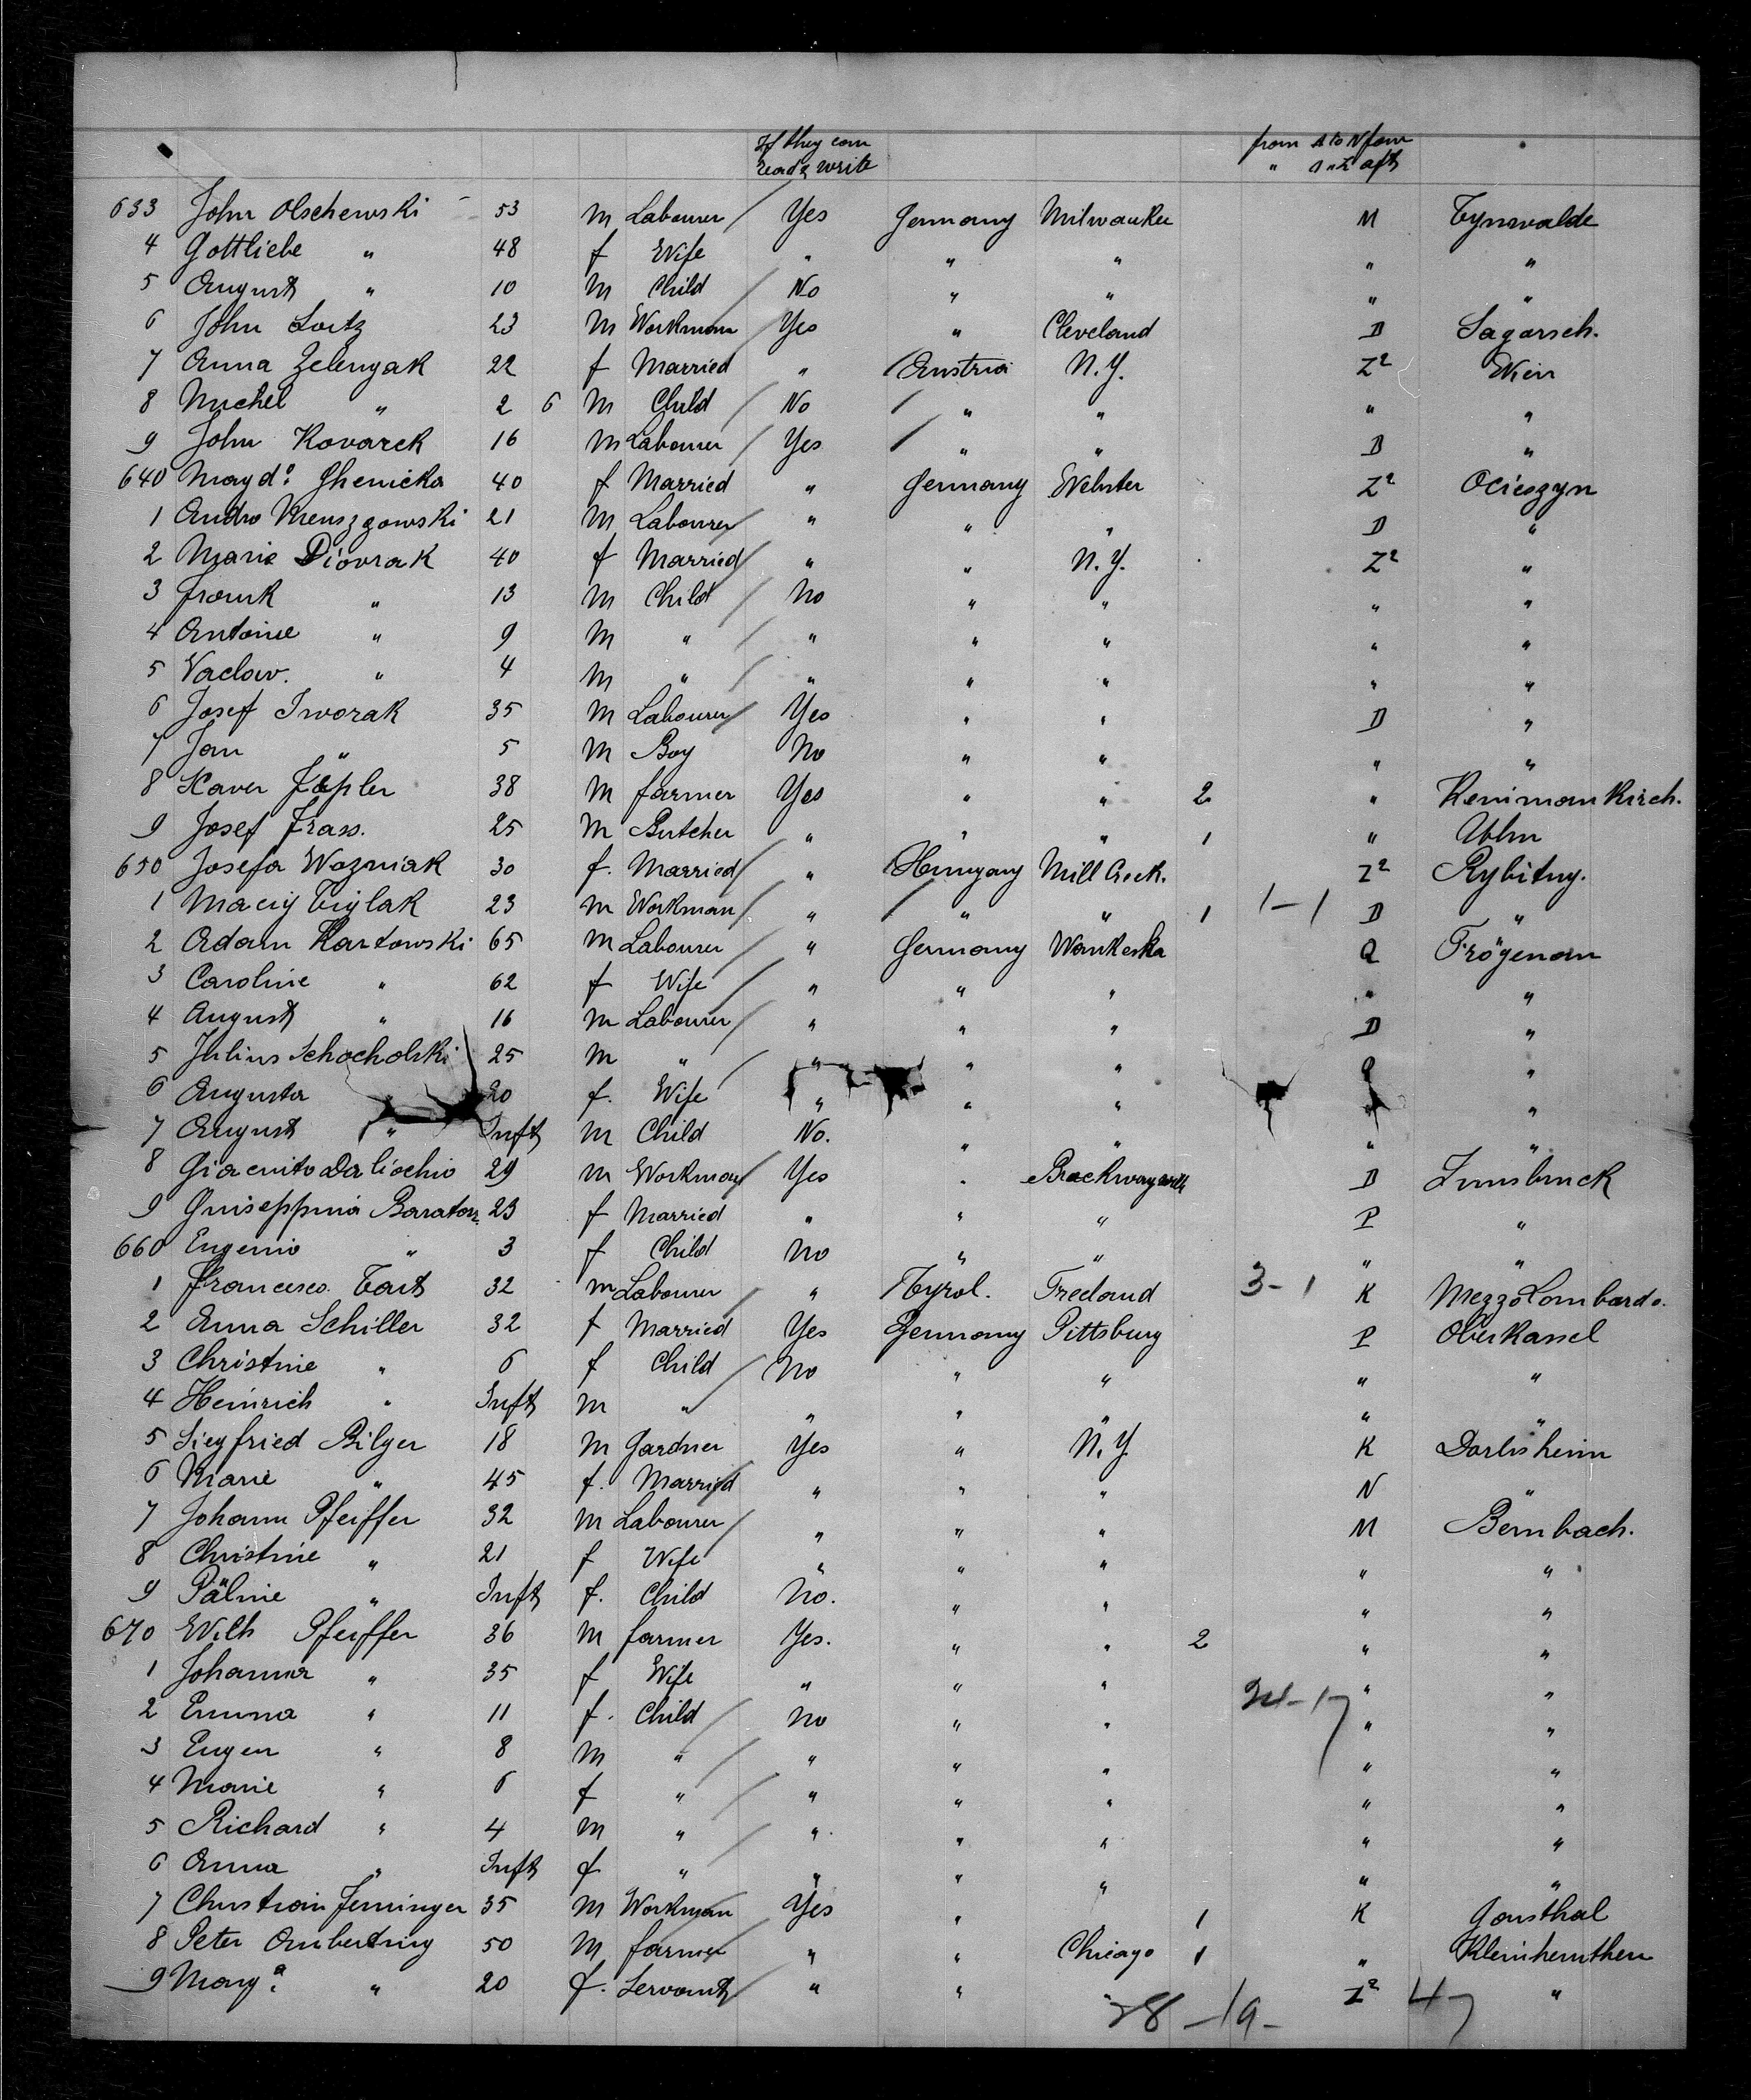 If they can from A to N fore
read & write " O " Z aft
633 John Olschewski 53 M Labourer Yes Germany Milwaukee M Tynwalde
4 Gottliebe " 48 f Wife " " " " "
5 August " 10 M Child No " " " "
6 John Loitz 23 M Workman Yes " Cleveland D Sagorsch.
7 Anna Zelenyak 22 f Married " Austria N.Y. Z2 Wien
8 Michel " 2 6 M Child No " " " "
9 John Kovarek 16 M Labourer Yes " " D "
640 Magda Ghenicka 40 f Married " Germany Webster Z2 Ocieszyn
1 Andro 21 M Labourer " " " D "
2 Marie Diovrak 40 f Married " " N.Y. Z2 "
3 Frank " 13 M Child No " " " "
4 Antoine " 9 M " " " " " "
5 Vaclav. " 4 M " " " " " "
6 Josef Dworak 35 M Labourer Yes " " D "
7 Jan " 5 M Boy No " " " "
8 Xaver 38 M farmer Yes " " 2 "
9 Josef Frass. 25 M Butcher " " " 1 " Ulm
650 Josefa Wozniak 30 f. Married " Hungary Mill Creek. Z2 Rybitny.
1 Maciej Ciglak 23 M Workman " " " 1 1-1 D "
2 Adam Kartowski 65 M Labourer " Germany Waukeska Q Frögenau
3 Caroline " 62 f Wife " " " " "
4 August " 16 M Labourer " " " D "
5 Julius Schocholski 25 M " " " " Q "
6 Augusta 20 f. Wife " " " " "
7 August " Inft M Child No. " " " "
8 Giacinto Daliochio 29 M Workman Yes " Brockwayville D Innsbruck
9 Guiseppina Baraton 23 f Married " " " P "
660 Eugenio " 3 f Child No " " " "
1 Francesco Tait 32 M Labourer " Tyrol. Freeland 3-1 K Mezzolombardo.
2 Anna Schiller 32 f Married Yes Germany Pittsburg P Oberkassel
3 Christine " 6 f Child No " " " "
4 Heinrich " Inft M " " " " " "
5 Siegfried Bilger 18 M Gardner Yes " N.Y. K Dorlisheim
6 Marie " 45 f. Married " " " N "
7 Johann Pfeiffer 32 M Labourer " " " M Bernbach.
8 Christine " 21 f Wife " " " " "
9 Pälmie " Inft f. Child No. " " " "
670 Wilh Pfeiffer 36 M farmer Yes. " " 2 " "
1 Johanna " 35 f Wife " " " " "
2 Emma " 11 f. Child No " " 24-17 " "
3 Eugen " 8 M " " " " " "
4 Marie " 6 f " " " " " "
5 Richard " 4 M " " " " " "
6 Anna " Inft f " " " " " "
7 Christian Jenninger 35 M Workman Yes " 1 K Gansthal
8 Peter Ambertiny 50 M farmer " " Chicago 1 " Kleinhemthen
9 Marga " 20 f. Servant " " " Z2 "
28-19- 47